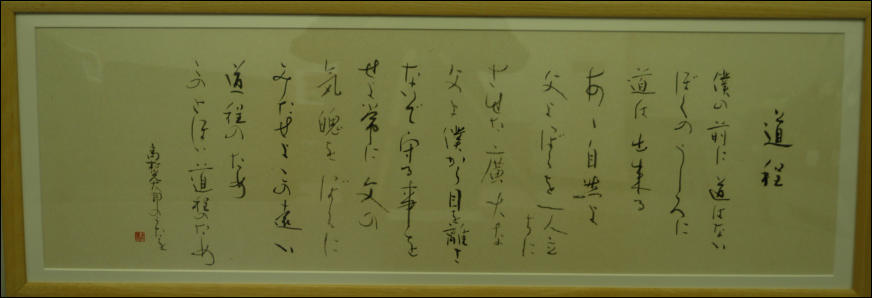 道程
僕の前に道はない
ぼくのうしろに
道は出来る
あゝ自然よ
父よぼくを一人立
ちに
させた廣大な
父よ僕から目を離さ
ないで守る事を
せよ常に父の
気魄をぼくに
みたせよこの遠い
道程のため
このとほい道程のため
高村光太郎の